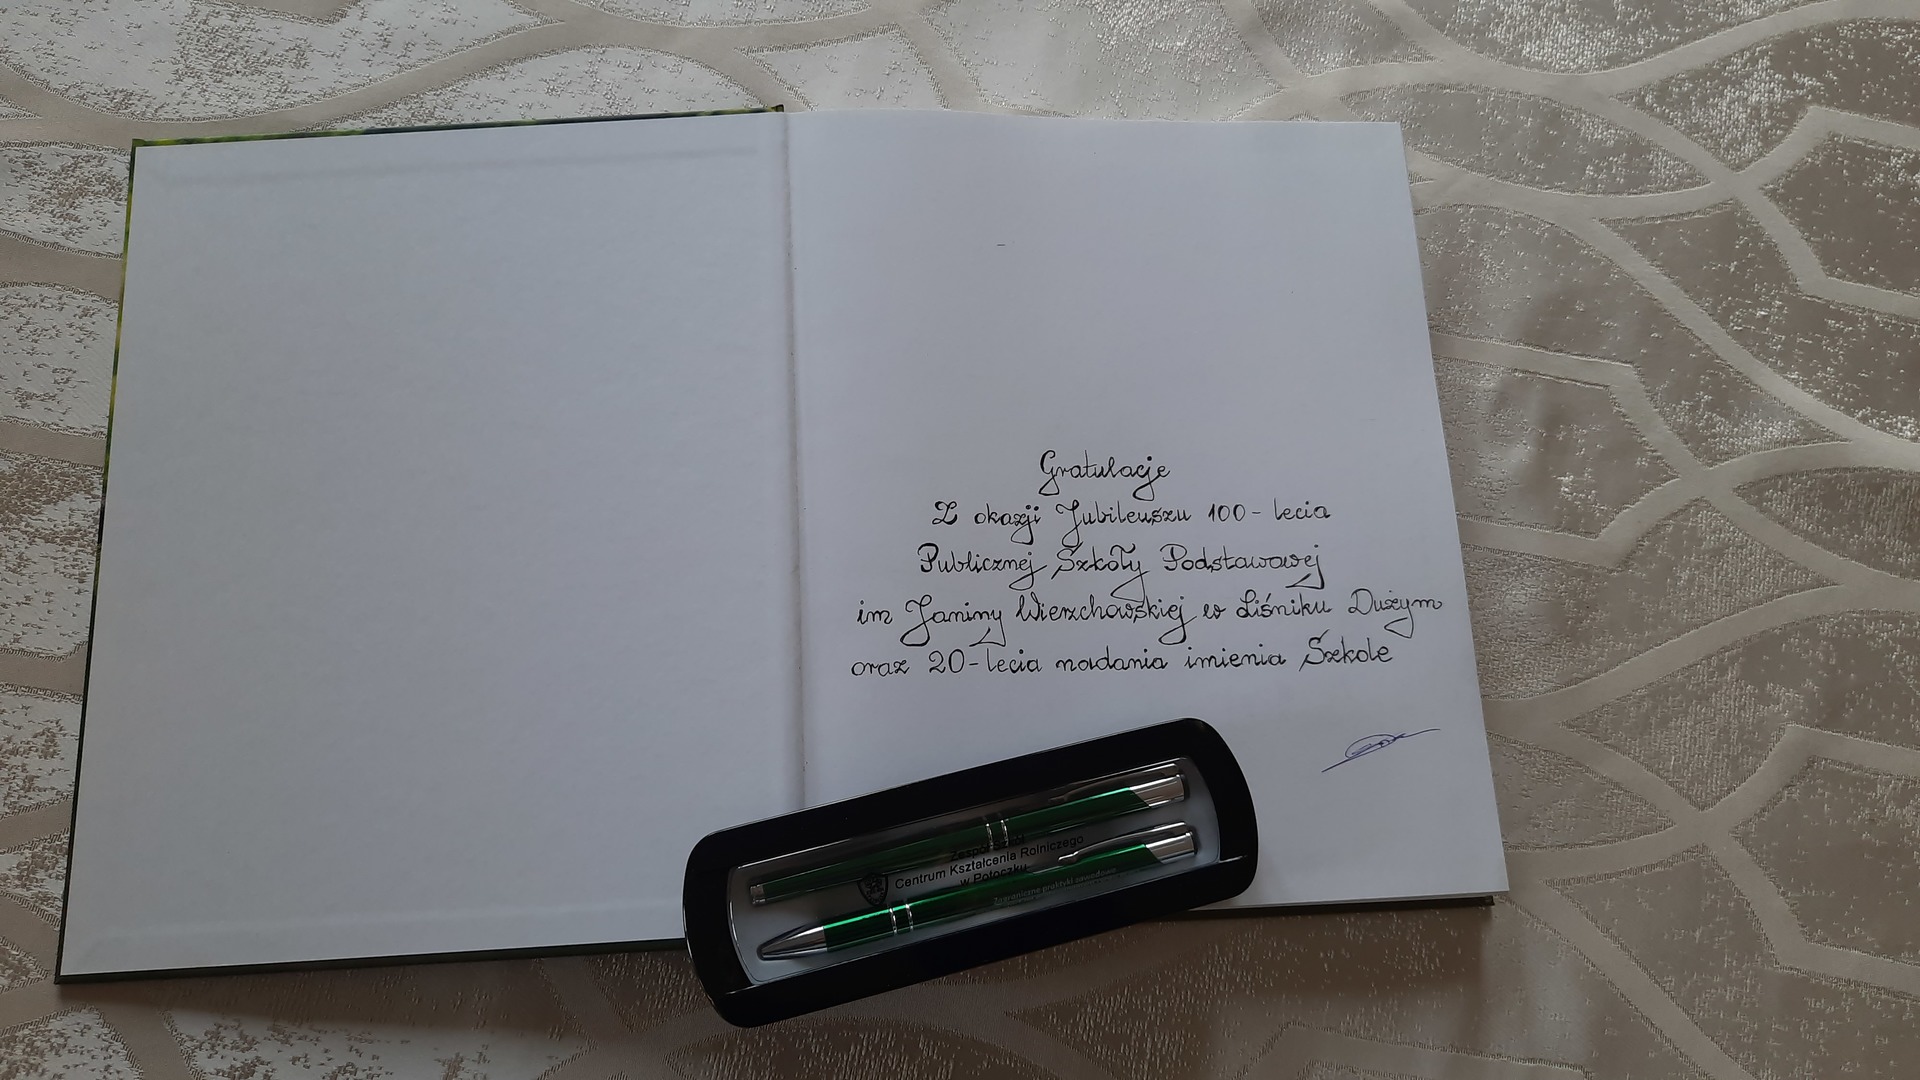 Gratulacje
Z okazji Jubileuszu 100-lecia
Publicznej Szkoły Podstawowej
im Janiny Wierzchowskiej w Liśniku Dużym
oraz 20-lecia nadania imienia Szkole
Zespół Szkół
Centrum Kształcenia Rolniczego
w Potoczku
Zagraniczne praktyki zawodowe